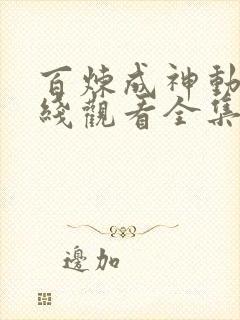 百煉成神動
綫觀看全集
邊加